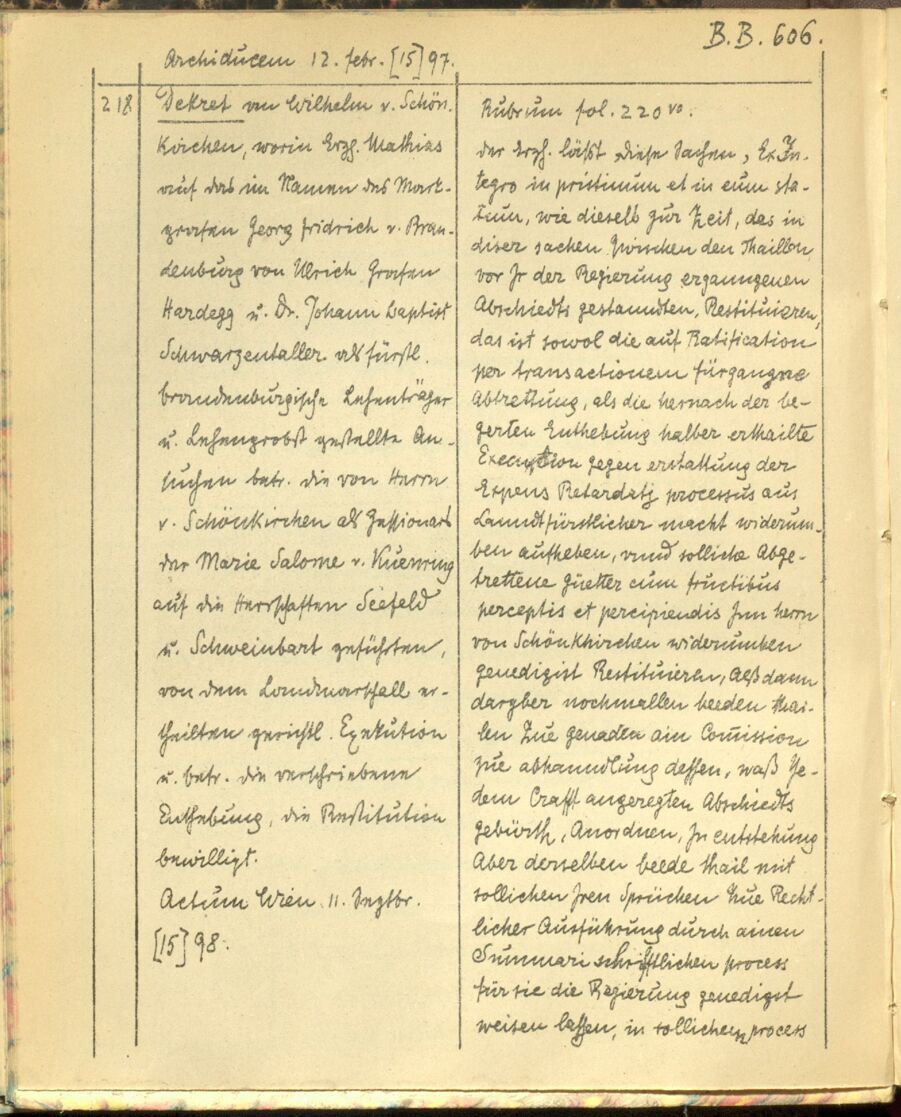 B.B. 606.
Archiducem 12. febr. [15]97.
218
Dekret von Wilhelm v. Schön-
kirchen, worin Erzh. Mathias
auf das im Namen des Mark-
grafen Georg Fridrich v. Bran-
denburg von Ulrich Grafen
Hardegg u. Dr. Johann Baptist
Schwarzentaller als fürstl.
brandenburgische Lehenträger
u. Lehenprobst gestellte An-
suchen betr. die von Herrn
v. Schönkirchen als Zessionars
der Marie Salome v. Kuenring
auf die Herrschaften Seefeld
u. Schweinbart geführten,
von dem Landmarschall er-
theilten gerichtl. Exekution
u. betr. die verschriebene
Enthebung, die Restitution
bewilligt.
Actum Wien 11. Septbr.
[15]98.
Rubrum fol. 220 vo.
der Erzh. läßt diese Sachen, Ex In-
tegro in pristinum et in eum sta-
tum, wie dieselb zur Zeit, des in
diser sachen Zwischen den Thaillen
vor Jr der Regierung ergangenen
Abschiedts gestanndten, Restituieren,
das ist sowol die auf Ratification
per transactionem fürgangne
Abtrettung, als die hernach der be-
gerten Enthebung halber erthailte
Execution gegen erstattung der
Expens Retardatj processus aus
Lanndtfürstlicher macht widerum-
ben aufheben, vnnd solliche Abge-
trettene güetter cum fructibus
perceptis et percipiendis Jme herrn
von Schönkhirchen widerumben
genedigist Restituieren, Alß dann
darüber nochmallen beeden thai-
len Zue genaden ain Comission
zue abhanndlung dessen, waß Je-
dem Crafft angeregten Abschiedts
gebürth, Anordnen, Jn entstehung
Aber derselben beede thail mit
sollichen Jren Sprüchen Zue Recht-
licher Ausführung durch ainen
Summari schrifftlichen process
für sie die Regierung genedigist
weisen lassen, in sollichen process